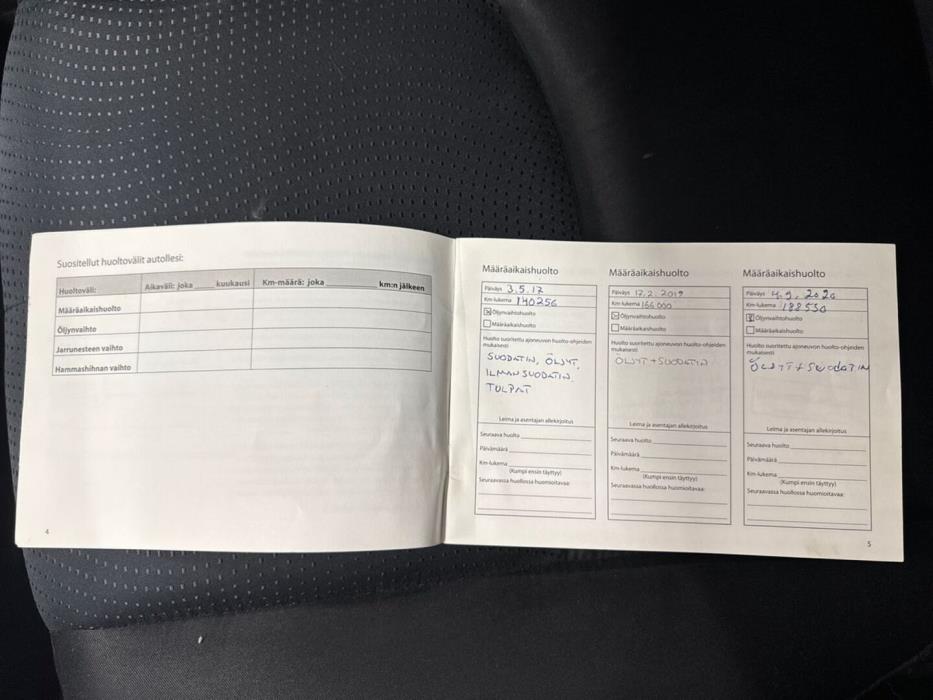 Suositellut huoltovälit autollesi:
Huoltoväli: Aikaväli: joka ____ kuukausi Km-määrä: joka ________ km:n jälkeen
Määräaikaishuolto
Öljynvaihto
Jarrunesteen vaihto
Hammashihnan vaihto
4
Määräaikaishuolto
Päiväys 3.5.17
Km-lukema 140256
Öljynvaihtohuolto
Määräaikaishuolto
Huolto suoritettu ajoneuvon huolto-ohjeiden
mukaisesti
SUODATIN, ÖLJYT,
ILMANSUODATIN
TULPAT
Leima ja asentajan allekirjoitus
Seuraava huolto
Päivämäärä
Km-lukema
(Kumpi ensin täyttyy)
Seuraavassa huollossa huomioitavaa:
Määräaikaishuolto
Päiväys 17.2.2019
Km-lukema 166 000
Öljynvaihtohuolto
Määräaikaishuolto
Huolto suoritettu ajoneuvon huolto-ohjeiden
mukaisesti
ÖLJYT + SUODATIN
Leima ja asentajan allekirjoitus
Seuraava huolto
Päivämäärä
Km-lukema
(Kumpi ensin täyttyy)
Seuraavassa huollossa huomioitavaa:
Määräaikaishuolto
Päiväys 4.9.2020
Km-lukema 188530
Öljynvaihtohuolto
Määräaikaishuolto
Huolto suoritettu ajoneuvon huolto-ohjeiden
mukaisesti
ÖLJYT + SUODATIN
Leima ja asentajan allekirjoitus
Seuraava huolto
Päivämäärä
Km-lukema
(Kumpi ensin täyttyy)
Seuraavassa huollossa huomioitavaa:
5